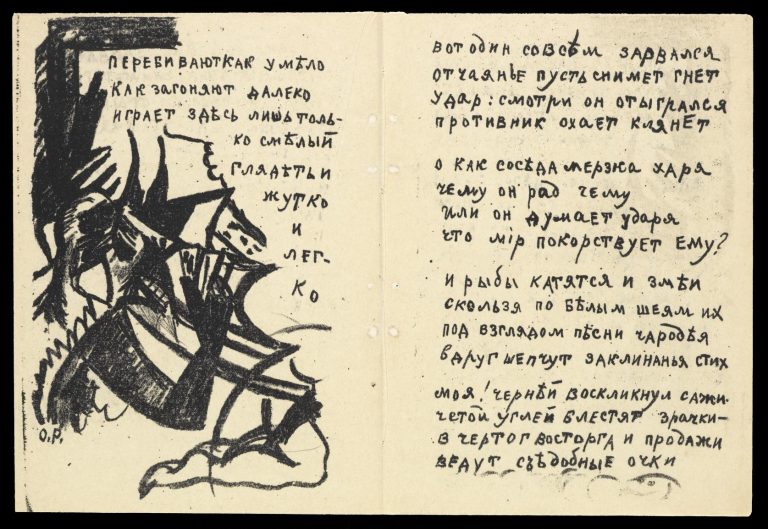 ПЕРЕБИВАЮТ КАК УМѢЛО
КАК ЗАГОНЯЮТ ДАЛЕКО
ИГРАЕТ ЗДѢСЬ ЛИШЬ ТОЛЬ-
КО СМѢЛЫЙ
ГЛЯДѢТЬ И
ЖУТКО
И
ЛЕГ-
КО
О.Р.
ВОТ ОДИН СОВСѢМ ЗАРВАЛСЯ
ОТЧАЯНЬЕ ПУСТЬ СНИМЕТ ГНЕТ
УДАР: СМОТРИ ОН ОТЫГРАЛСЯ
ПРОТИВНИК ОХАЕТ КЛЯНЕТ
О КАК СОСѢДА МЕРЗКА ХАРЯ
ЧЕМУ ОН РАД ЧЕМУ
ИЛИ ОН ДУМАЕТ УДАРЯ
ЧТО МІР ПОКОРСТВУЕТ ЕМУ?
И РЫБЫ КАТЯТСЯ И ЗМѢИ
СКОЛЬЗЯ ПО БѢЛЫМ ШЕЯМ ИХ
ПОД ВЗГЛЯДОМ ПѢСНИ ЧАРОДѢЯ
ВДРУГ ШЕПЧУТ ЗАКЛИНАНЬЯ СТИХ
МОЯ! ЧЕРНѢЙ ВОСКЛИКНУЛ САЖИ
ЧЕТОЙ УГЛЕЙ БЛЕСТЯТ ЗРАЧКИ —
В ЧЕРТОГ ВОСТОРГА И ПРОДАЖИ
ВЕДУТ СЪѢДОБНЫЕ ОЧКИ